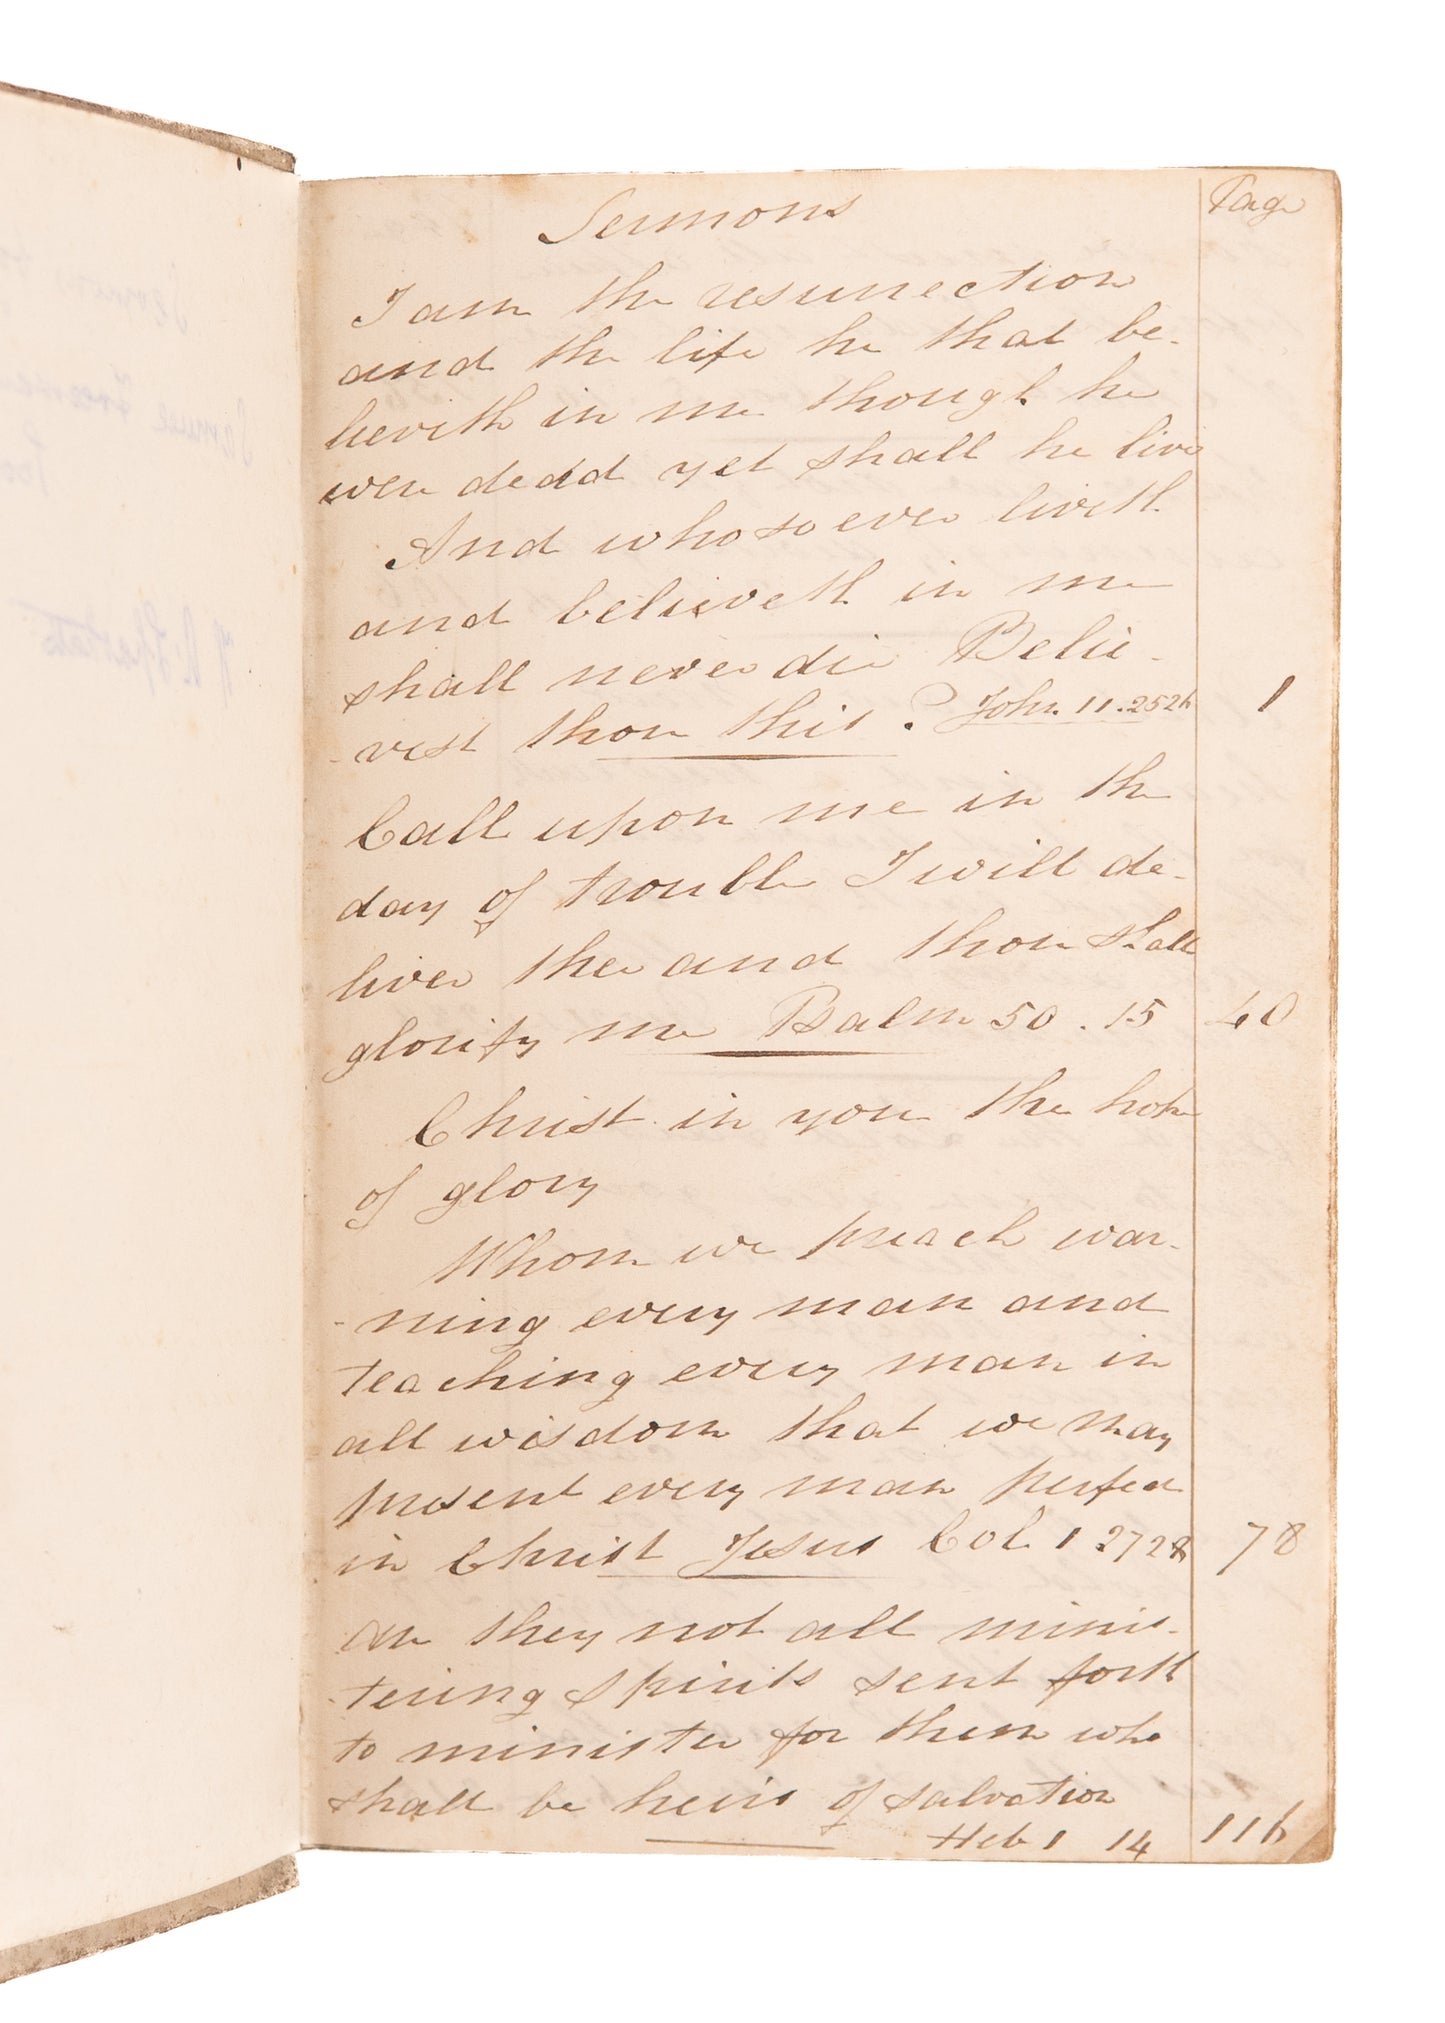 Sermons
Page
I am the resurrection
and the life he that be-
lieveth in me though he
were dead yet shall he live
And whosoever liveth
and believeth in me
shall never die Belie-
-vest thou this? John. 11.25 26
1
Call upon me in the
day of trouble I will de-
liver thee and thou shall
glorify me Psalm 50.15
40
Christ in you the hope
of glory
Whom we preach war-
-ning every man and
teaching every man in
all wisdom that we may
present every man perfect
in Christ Jesus Col 1 27 28
78
are they not all minis-
-tering spirits sent forth
to minister for them who
shall be heirs of salvation
Heb 1 14
116